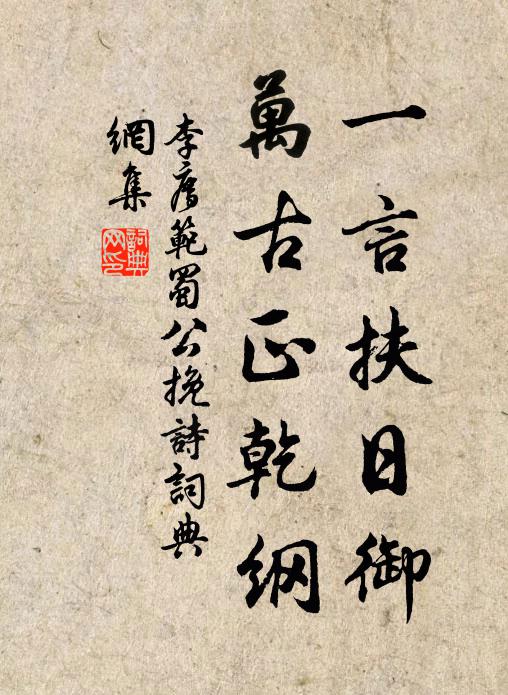 一言扶日御
萬古正乾綱
李廌範蜀公挽詩詞典
網集
詞典網印